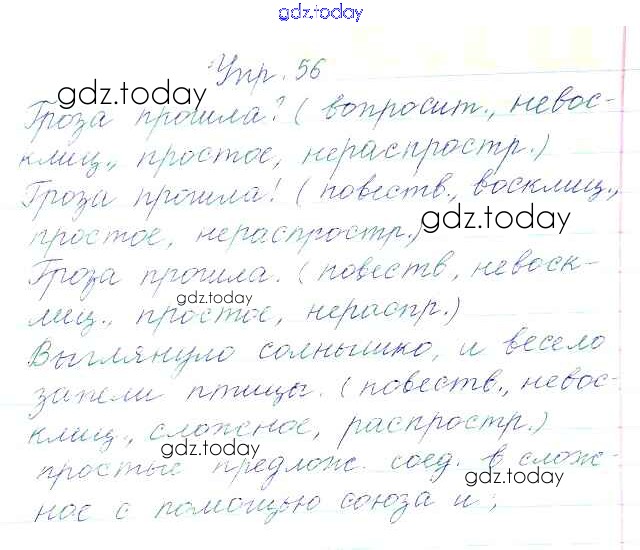 gdz.today
Упр. 56
gdz.today
Гроза прошла? (вопросит., невос-
клиц., простое, нераспростр.)
Гроза прошла! (повеств., восклиц.,
gdz.today
простое, нераспростр.)
Гроза прошла. (повеств, невоск-
gdz.today
лиц., простое, нераспр.)
Выглянуло солнышко, и весело
запели птицы. (повеств., невос-
клиц., сложное, распростр.)
gdz.today
простые предлож. соед. в слож-
gdz.today
ное с помощью союза и;